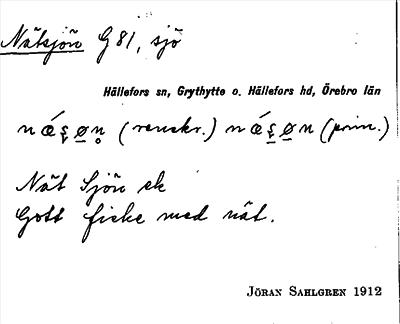 Nätsjön G 81, sjö
Hällefors sn, Grythytte o. Hällefors hd, Örebro län
(renskr.) (prim.)
Nät Sjön ek
Gott fiske med nät.
JÖRAN SAHLGREN 1912